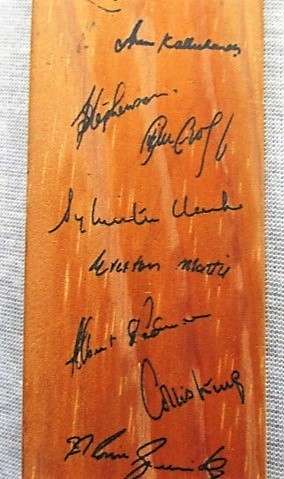 Alvin Kallicharran
Stephenson
Colin Croft
Sylvester Clarke
Everton Mattis
Albert Padmore
Collis King